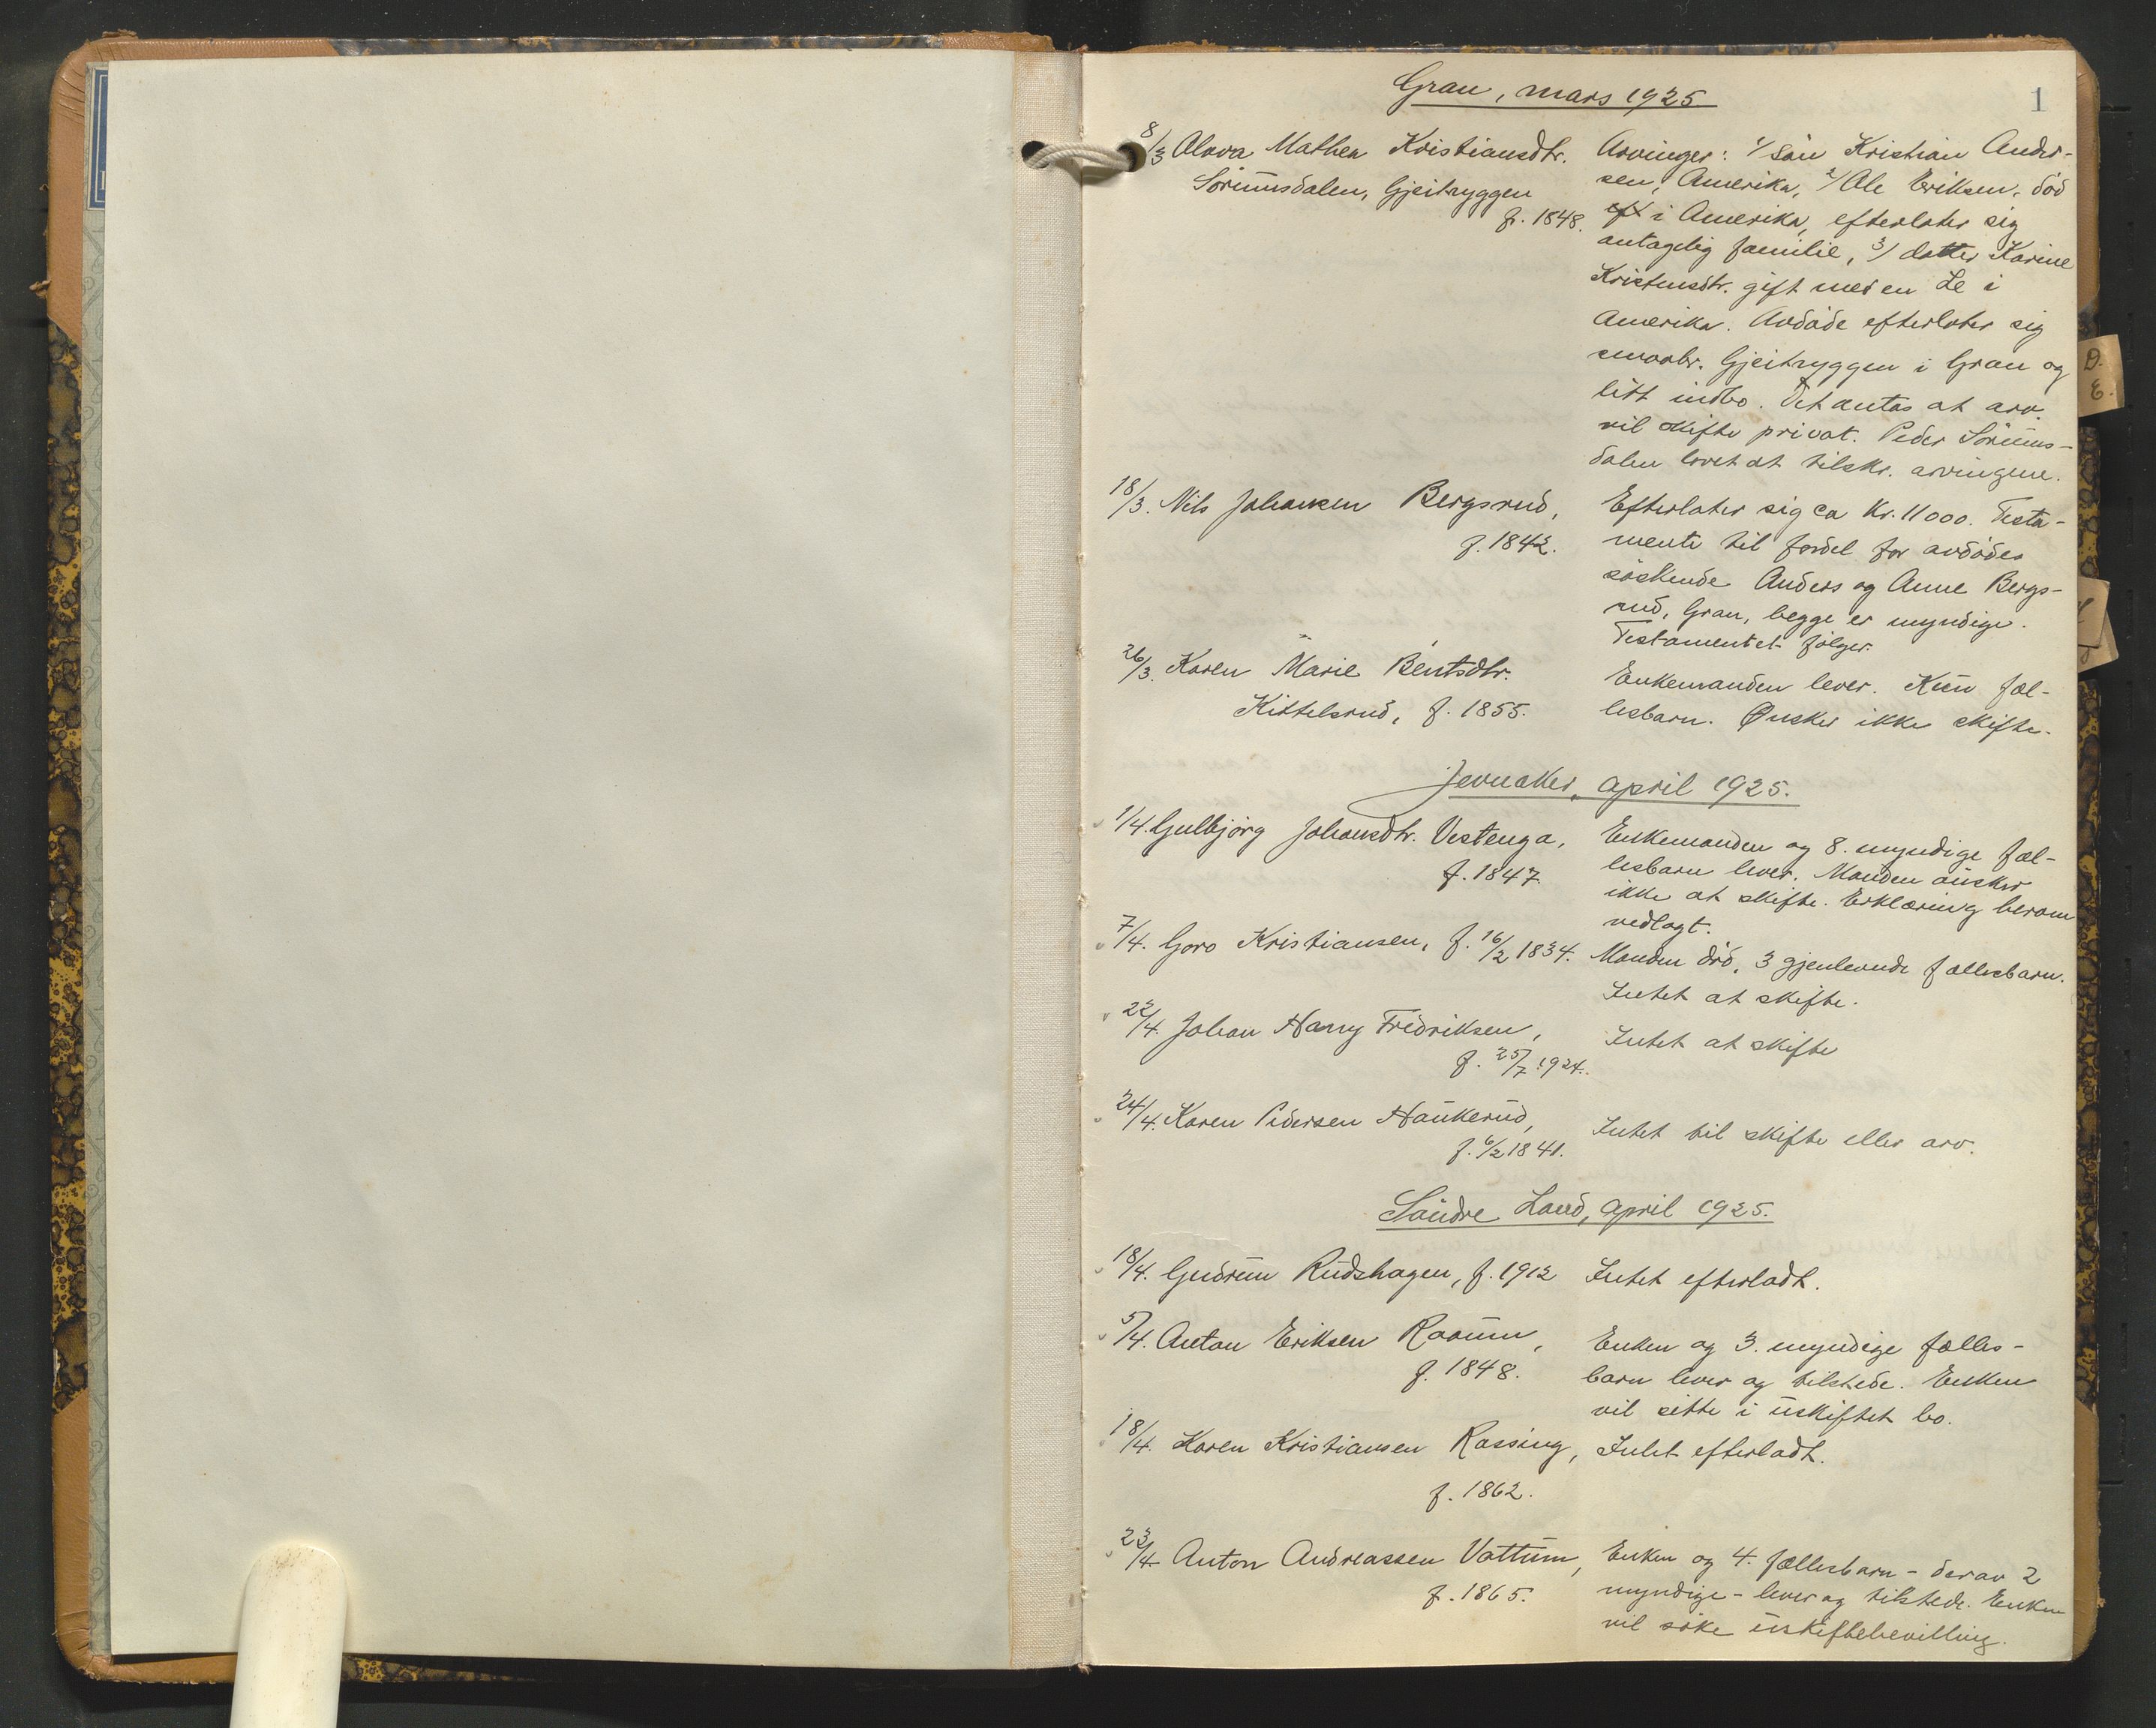 1
Gran, mars 1925
8/3 Olava Mathea Kristiansdtr.
Sörumsdalen, Gjeitryggen
f. 1848.
Arvinger: 1/ sön Kristian Ander-
sen, Amerika, 2/ Ole Eriksen, död
eft i Amerika, efterlater sig
antagelig familie, 3/ datter Karine
Kristensdtr. gift med en Le i
Amerika. Avdöde efterlater sig
smaabr. Gjeitryggen i Gran og
litt indbo. Det antas at arv.
vil skifte privat. Peder Sörums-
dalen lovet at tilskr. arvingene.
18/3. Nils Johansen Bergsrud,
f. 1842.
Efterlater sig ca Kr. 11000. Testa-
mente til fordel for avdödes
söskende Anders og Anne Bergs-
rud, Gran, begge er myndige.
Testamentet fölger.
26/3. Karen Marie Bentsdtr.
Kittelsrud, f. 1855.
Enkemanden lever. Kun fæl-
lesbarn. Ønsker ikke skifte.
Jevnaker, april 1925.
1/4. Gulbjörg Johansdtr. Vestenga,
f. 1847.
Enkemanden og 8. myndige fæl-
lesbarn lever. Manden önsker
ikke at skifte. Erklæring herom
vedlagt.
7/4. Goro Kristiansen, f. 16/2 1834.
Manden död, 3 gjenlevende fællesbarn.
Intet at skifte.
22/4. Johan Harry Fredriksen,
f. 25/7 1924.
Intet at skifte
24/4. Karen Pedersen Haukerud,
f. 6/2 1841.
Intet til skifte eller arv.
Söndre Land, april 1925.
18/4. Gudrun Rudshagen, f. 1912
Intet efterladt.
5/4. Anton Eriksen Raaum,
f. 1848.
Enken og 3. myndige fælles-
barn lever og tilstede. Enken
vil sitte i uskiftet bo.
18/4. Karen Kristiansen Rassing,
f. 1862.
Intet efterladt.
23/4 Anton Andreassen Vattum,
f. 1865.
Enken og 4. fællesbarn - derav 2
myndige - lever og tilstede. Enken
vil söke uskiftebevilling.
D.
E.